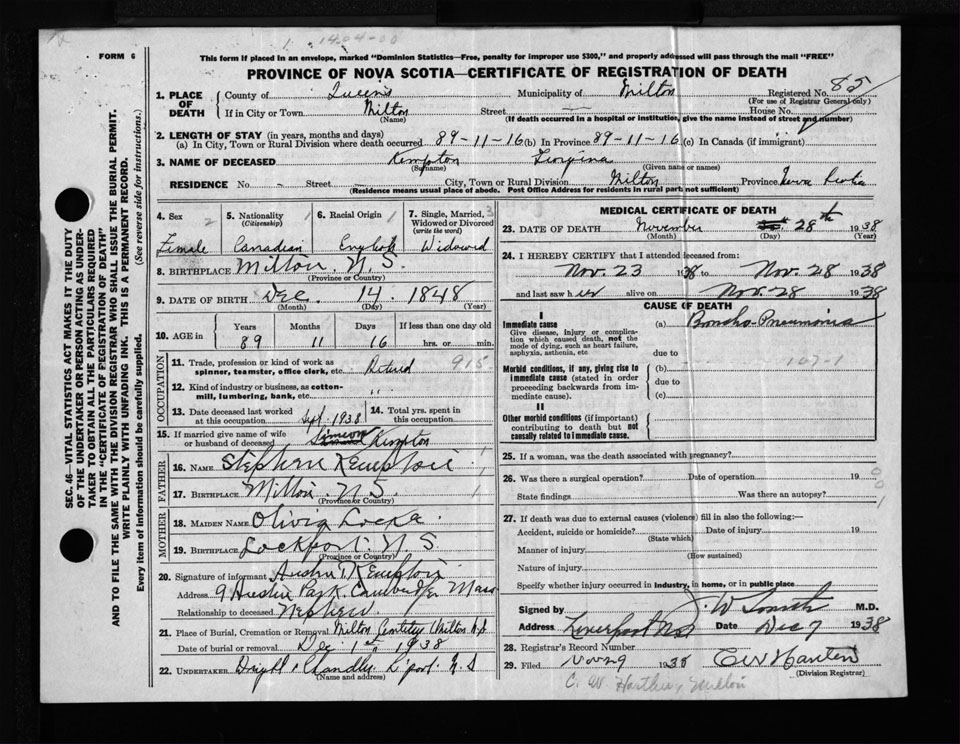 1404-00
FORM 6
This form if placed in an envelope, marked "Dominion Statistics—Free, penalty for improper use $300," and properly addressed will pass through the mail "FREE"
PROVINCE OF NOVA SCOTIA—CERTIFICATE OF REGISTRATION OF DEATH
SEC. 46—VITAL STATISTICS ACT MAKES IT THE DUTY
OF THE UNDERTAKER OR PERSON ACTING AS UNDER-
TAKER TO OBTAIN ALL THE PARTICULARS REQUIRED
IN THE "CERTIFICATE OF REGISTRATION OF DEATH"
AND TO FILE THE SAME WITH THE DIVISION REGISTRAR WHO SHALL ISSUE THE BURIAL PERMIT.
WRITE PLAINLY WITH UNFADING INK. THIS IS A PERMANENT RECORD.
Every item of information should be carefully supplied. (See reverse side for instructions.)
1. PLACE OF DEATH County of Queens Municipality of Milton Registered No. 85
(For use of Registrar General only)
If in City or Town Milton Street — House No.
(Name) (If death occurred in a hospital or institution, give the name instead of street and number)
2. LENGTH OF STAY (in years, months and days)
(a) In City, Town or Rural Division where death occurred 89-11-16 (b) In Province 89-11-16 (c) In Canada (if immigrant)
3. NAME OF DECEASED Kempton Georgina
(Surname) (Given name or names)
RESIDENCE No. - Street City, Town or Rural Division Milton Province Nova Scotia
(Residence means usual place of abode. Post Office Address for residents in rural part not sufficient)
4. Sex 2 5. Nationality 1 (Citizenship) 6. Racial Origin 1 7. Single, Married, 3 Widowed or Divorced (write the word)
Female Canadian English Widowed
8. BIRTHPLACE Milton. N.S.
(Province or Country)
9. DATE OF BIRTH Dec. 14. 1848
(Month) (Day) (Year)
10. AGE in Years Months Days If less than one day old
89 11 16 hrs. or min.
OCCUPATION
11. Trade, profession or kind of work as spinner, teamster, office clerk, etc. Retired 915
12. Kind of industry or business, as cotton-mill, lumbering, bank, etc. "
13. Date deceased last worked at this occupation Sept. 1938 14. Total yrs. spent in this occupation
15. If married give name of wife or husband of deceased Simeon Kempton
FATHER
16. NAME Stephen Kempton
17. BIRTHPLACE Milton N.S. 1
(Province or Country)
MOTHER
18. MAIDEN NAME Olivia
19. BIRTHPLACE Lockport. N S
(Province or Country)
20. Signature of informant Kempton
Address 9 Park Cambridge Mass
Relationship to deceased Nephew.
21. Place of Burial, Cremation or Removal Milton Milton N.S
Date of burial or removal Dec 1st 1938
22. UNDERTAKER Chandler L'pool. N.S
(Name and address)
MEDICAL CERTIFICATE OF DEATH
23. DATE OF DEATH November 28th 1938
(Month) (Day) (Year)
24. I HEREBY CERTIFY that I attended deceased from:
Nov. 23 1938 to Nov. 28 1938
and last saw her alive on Nov. 28 1938
CAUSE OF DEATH
I
Immediate cause (a) Broncho-Pneumonia
Give disease, injury or complica-
tion which caused death, not the
mode of dying, such as heart failure,
asphyxia, asthenia, etc due to
Morbid conditions, if any, giving rise to (b) 107-1
immediate cause (stated in order due to
proceeding backwards from im-
mediate cause). (c)
II
Other morbid conditions (if important)
contributing to death but not
causally related to immediate cause.
25. If a woman, was the death associated with pregnancy?
26. Was there a surgical operation? Date of operation 19
State findings Was there an autopsy?
27. If death was due to external causes (violence) fill in also the following:—
Accident, suicide or homicide? Date of injury 19
(State which)
Manner of injury
(How sustained)
Nature of injury
Specify whether injury occurred in industry, in home, or in public place
Signed by J. W. Smith M.D.
Address Liverpool N.S Date Dec 7 1938
28. Registrar's Record Number
29. Filed Nov 29 1938
(Division Registrar)
C. W. Milton